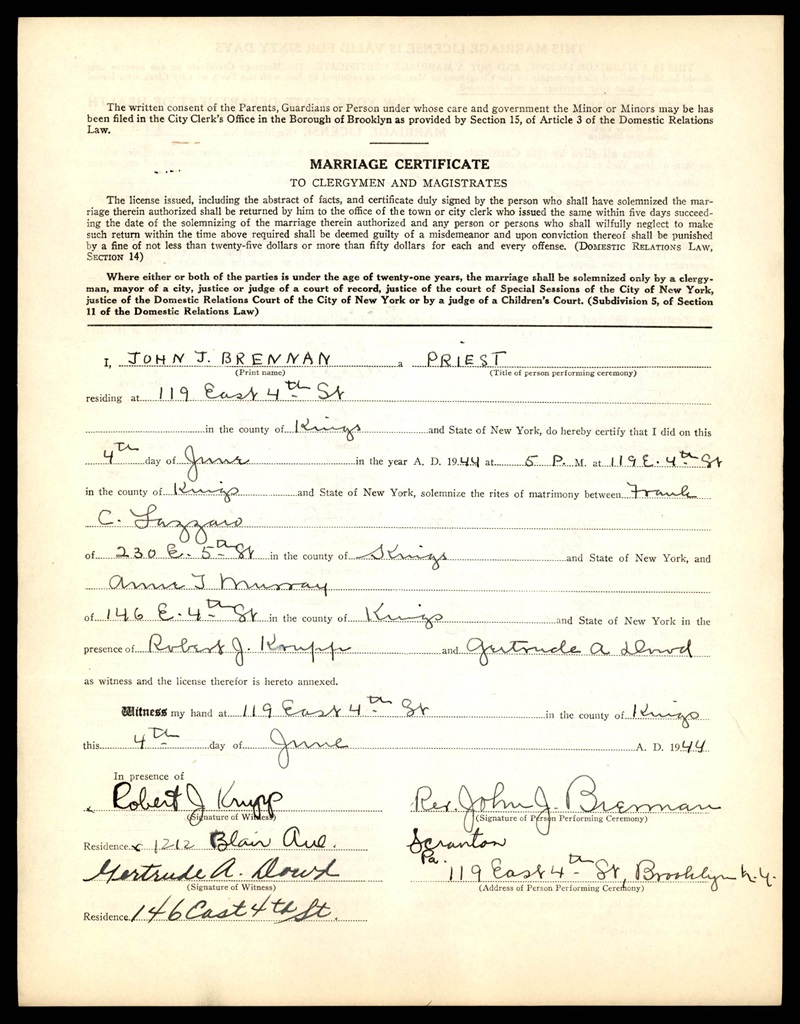 The written consent of the Parents, Guardians or Person under whose care and government the Minor or Minors may be has
been filed in the City Clerk's Office in the Borough of Brooklyn as provided by Section 15, of Article 3 of the Domestic Relations
Law.
MARRIAGE CERTIFICATE
TO CLERGYMEN AND MAGISTRATES
The license issued, including the abstract of facts, and certificate duly signed by the person who shall have solemnized the mar-
riage therein authorized shall be returned by him to the office of the town or city clerk who issued the same within five days succeed-
ing the date of the solemnizing of the marriage therein authorized and any person or persons who shall wilfully neglect to make
such return within the time above required shall be deemed guilty of a misdemeanor and upon conviction thereof shall be punished
by a fine of not less than twenty-five dollars or more than fifty dollars for each and every offense. (DOMESTIC RELATIONS LAW,
SECTION 14)
Where either or both of the parties is under the age of twenty-one years, the marriage shall be solemnized only by a clergy-
man, mayor of a city, justice or judge of a court of record, justice of the court of Special Sessions of the City of New York,
justice of the Domestic Relations Court of the City of New York or by a judge of a Children's Court. (Subdivision 5, of Section
11 of the Domestic Relations Law)
I, JOHN J. BRENNAN a PRIEST
(Print name) (Title of person performing ceremony)
residing at 119 East 4th St
in the county of Kings and State of New York, do hereby certify that I did on this
4th day of June in the year A. D. 1944 at 5 P. M. at 119 E. 4th St
in the county of Kings and State of New York, solemnize the rites of matrimony between Frank
C. Lazzaro
of 230 E. 5th St in the county of Kings and State of New York, and
Anne T Murray
of 146 E. 4th St in the county of Kings and State of New York in the
presence of Robert J. Krupp and Gertrude A Dowd
as witness and the license therefor is hereto annexed.
Witness my hand at 119 East 4th St in the county of Kings
this 4th day of June A. D. 1944
In presence of
Robert J Krupp Rev. John J. Brennan
(Signature of Witness) (Signature of Person Performing Ceremony)
Residence 1212 Blair Ave. Scranton Pa.
Gertrude A. Dowd 119 East 4th St, Brooklyn N.Y.
(Signature of Witness) (Address of Person Performing Ceremony)
Residence 146 East 4th St.